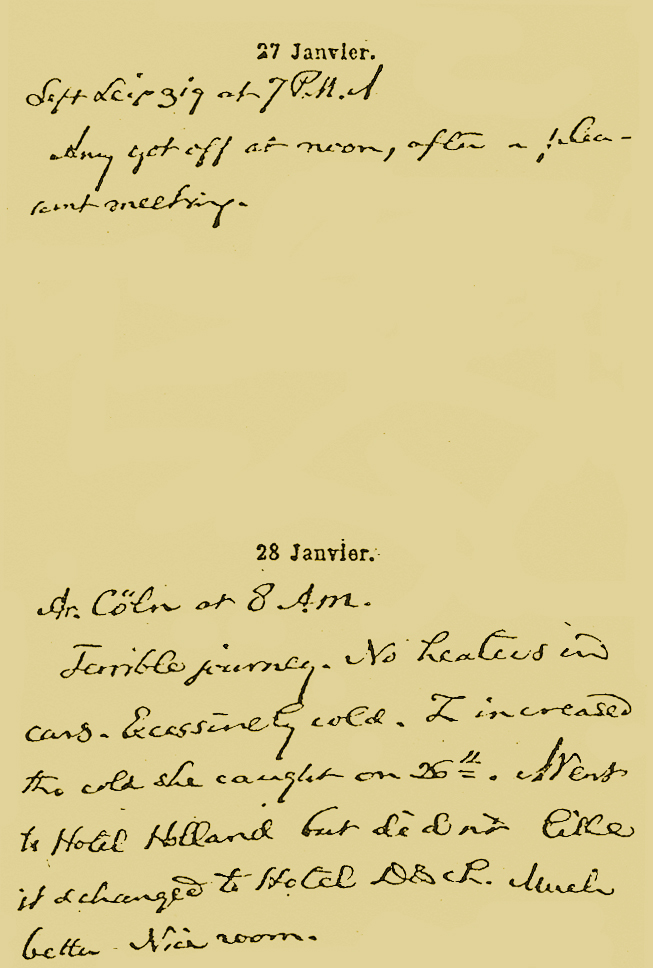 27 Janvier.
Left Leipzig at 7 P.M.
Amy got off at noon, after a plea-
sant meeting.
28 Janvier.
Ar. Cöln at 8 A.m.
Terrible journey. No heaters in
cars. Excessively cold. I increased
the cold she caught on 26th. Went
to Hotel Holland but did not like
it & changed to Hotel Disch. Much
better Nice room.